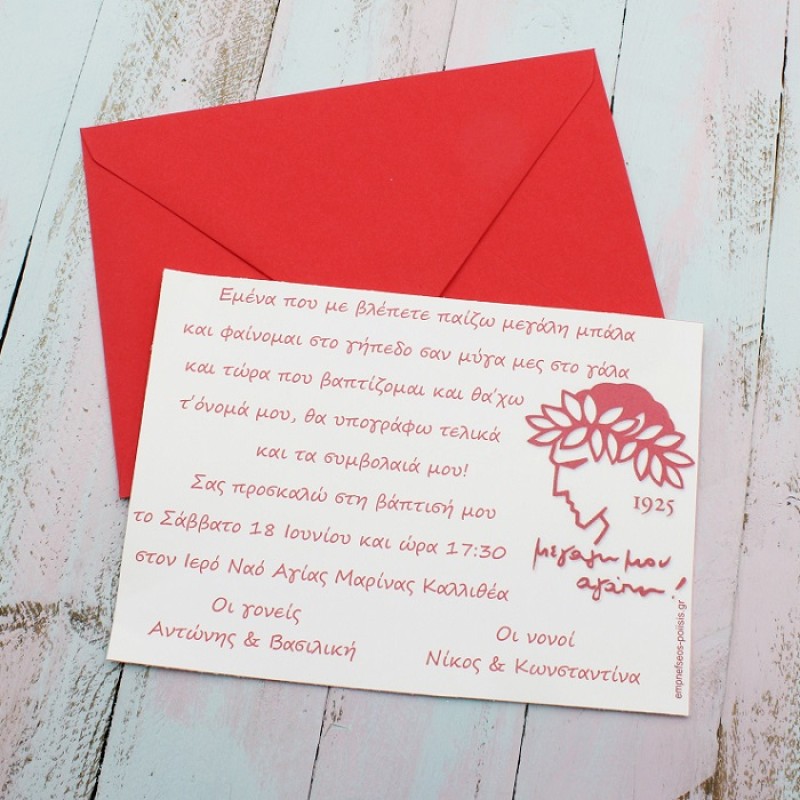 Εμένα που με βλέπετε παίζω μεγάλη μπάλα
και φαίνομαι στο γήπεδο σαν μύγα μες στο γάλα
και τώρα που βαπτίζομαι και θα'χω
τ'όνομά μου, θα υπογράφω τελικά
και τα συμβολαιά μου!
Σας προσκαλώ στη βάπτισή μου
το Σάββατο 18 Ιουνίου και ώρα 17:30
στον Ιερό Ναό Αγίας Μαρίνας Καλλιθέα
Οι γονείς
Αντώνης & Βασιλική
Οι νονοί
Νίκος & Κωνσταντίνα
1925
μεγάλη μου
αγάπη!
empnefseos-poiisis.gr